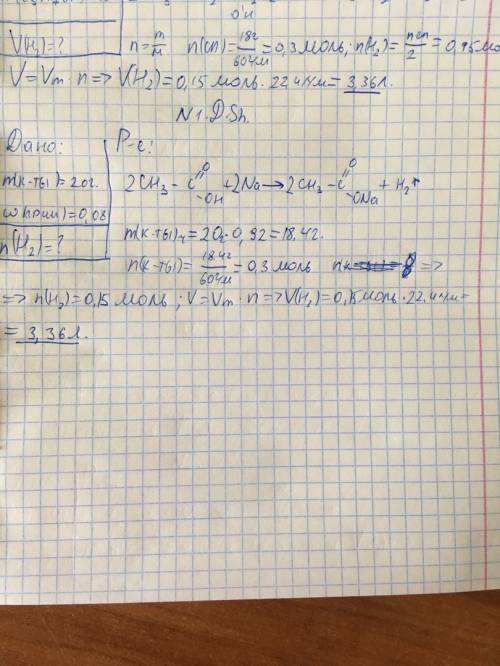 OH
V(H₂)=? n=m/M n(сп)=18г/60г/м=0,3 моль; n(H₂)=nсп/2=0,15мо
V=Vm·n=>V(H₂)=0,15 моль·22,4л/м=3,36л.
N1.D.Sh.
Дано: Р-е:
m(к-ты)=20г.
2CH₃-C O OH +2Na→2CH₃-C O ONa + H₂↑
w(прим)=0,08
m(к-ты)ч=20г·0,92=18,4г.
n(H₂)=?
n(к-ты)=18,4г/60г/м=0,3 моль =>
=> n(H₂)=0,15 моль; V=Vm·n=>V(H₂)=0,15моль·22,4л/м=
= 3,36л.